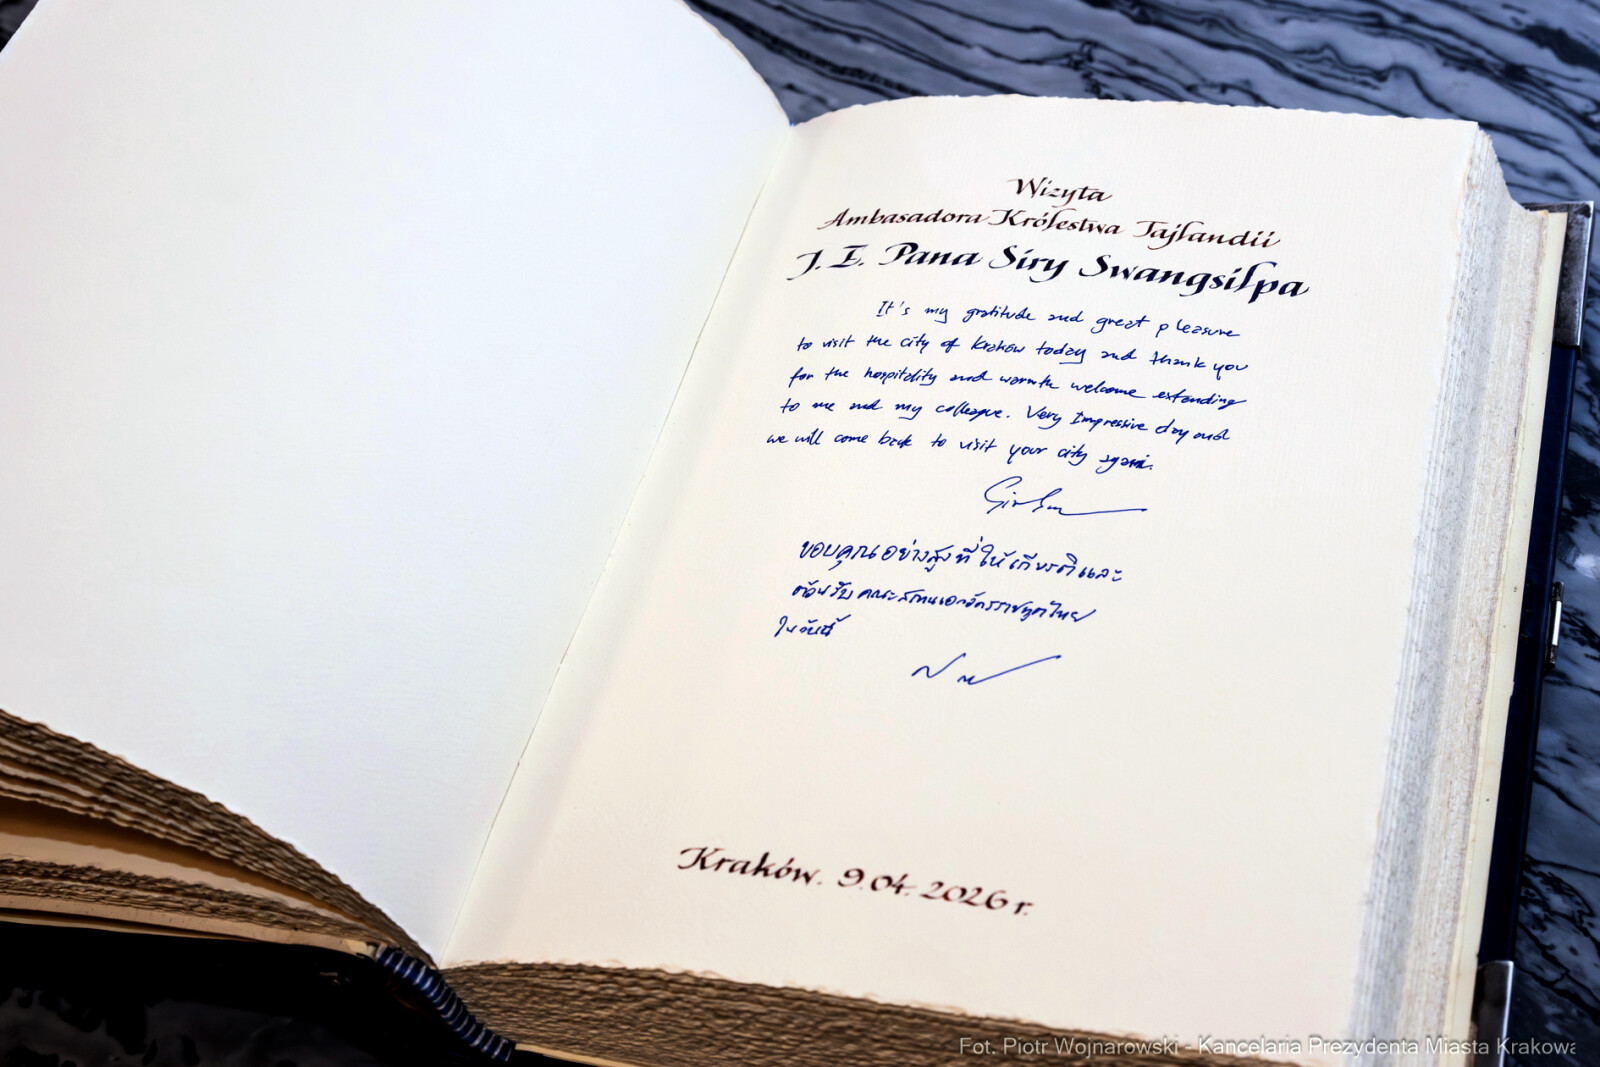 Wizyta
Ambasadora Królestwa Tajlandii
J. E. Pana Siry Swangsilpa
It's my gratitude and great pleasure
to visit the city of Krakow today and thank you
for the hospitality and warmth welcome extending
to me and my colleague. Very Impressive day and
we will come back to visit your city again.
ขอบคุณอย่างสูงที่ให้เกียรติและ
ต้อนรับคณะสถานเอกอัครราชทูตไทย
ในวันนี้
Kraków. 9.04.2026 r.
Fot. Piotr Wojnarowski - Kancelaria Prezydenta Miasta Krakowa